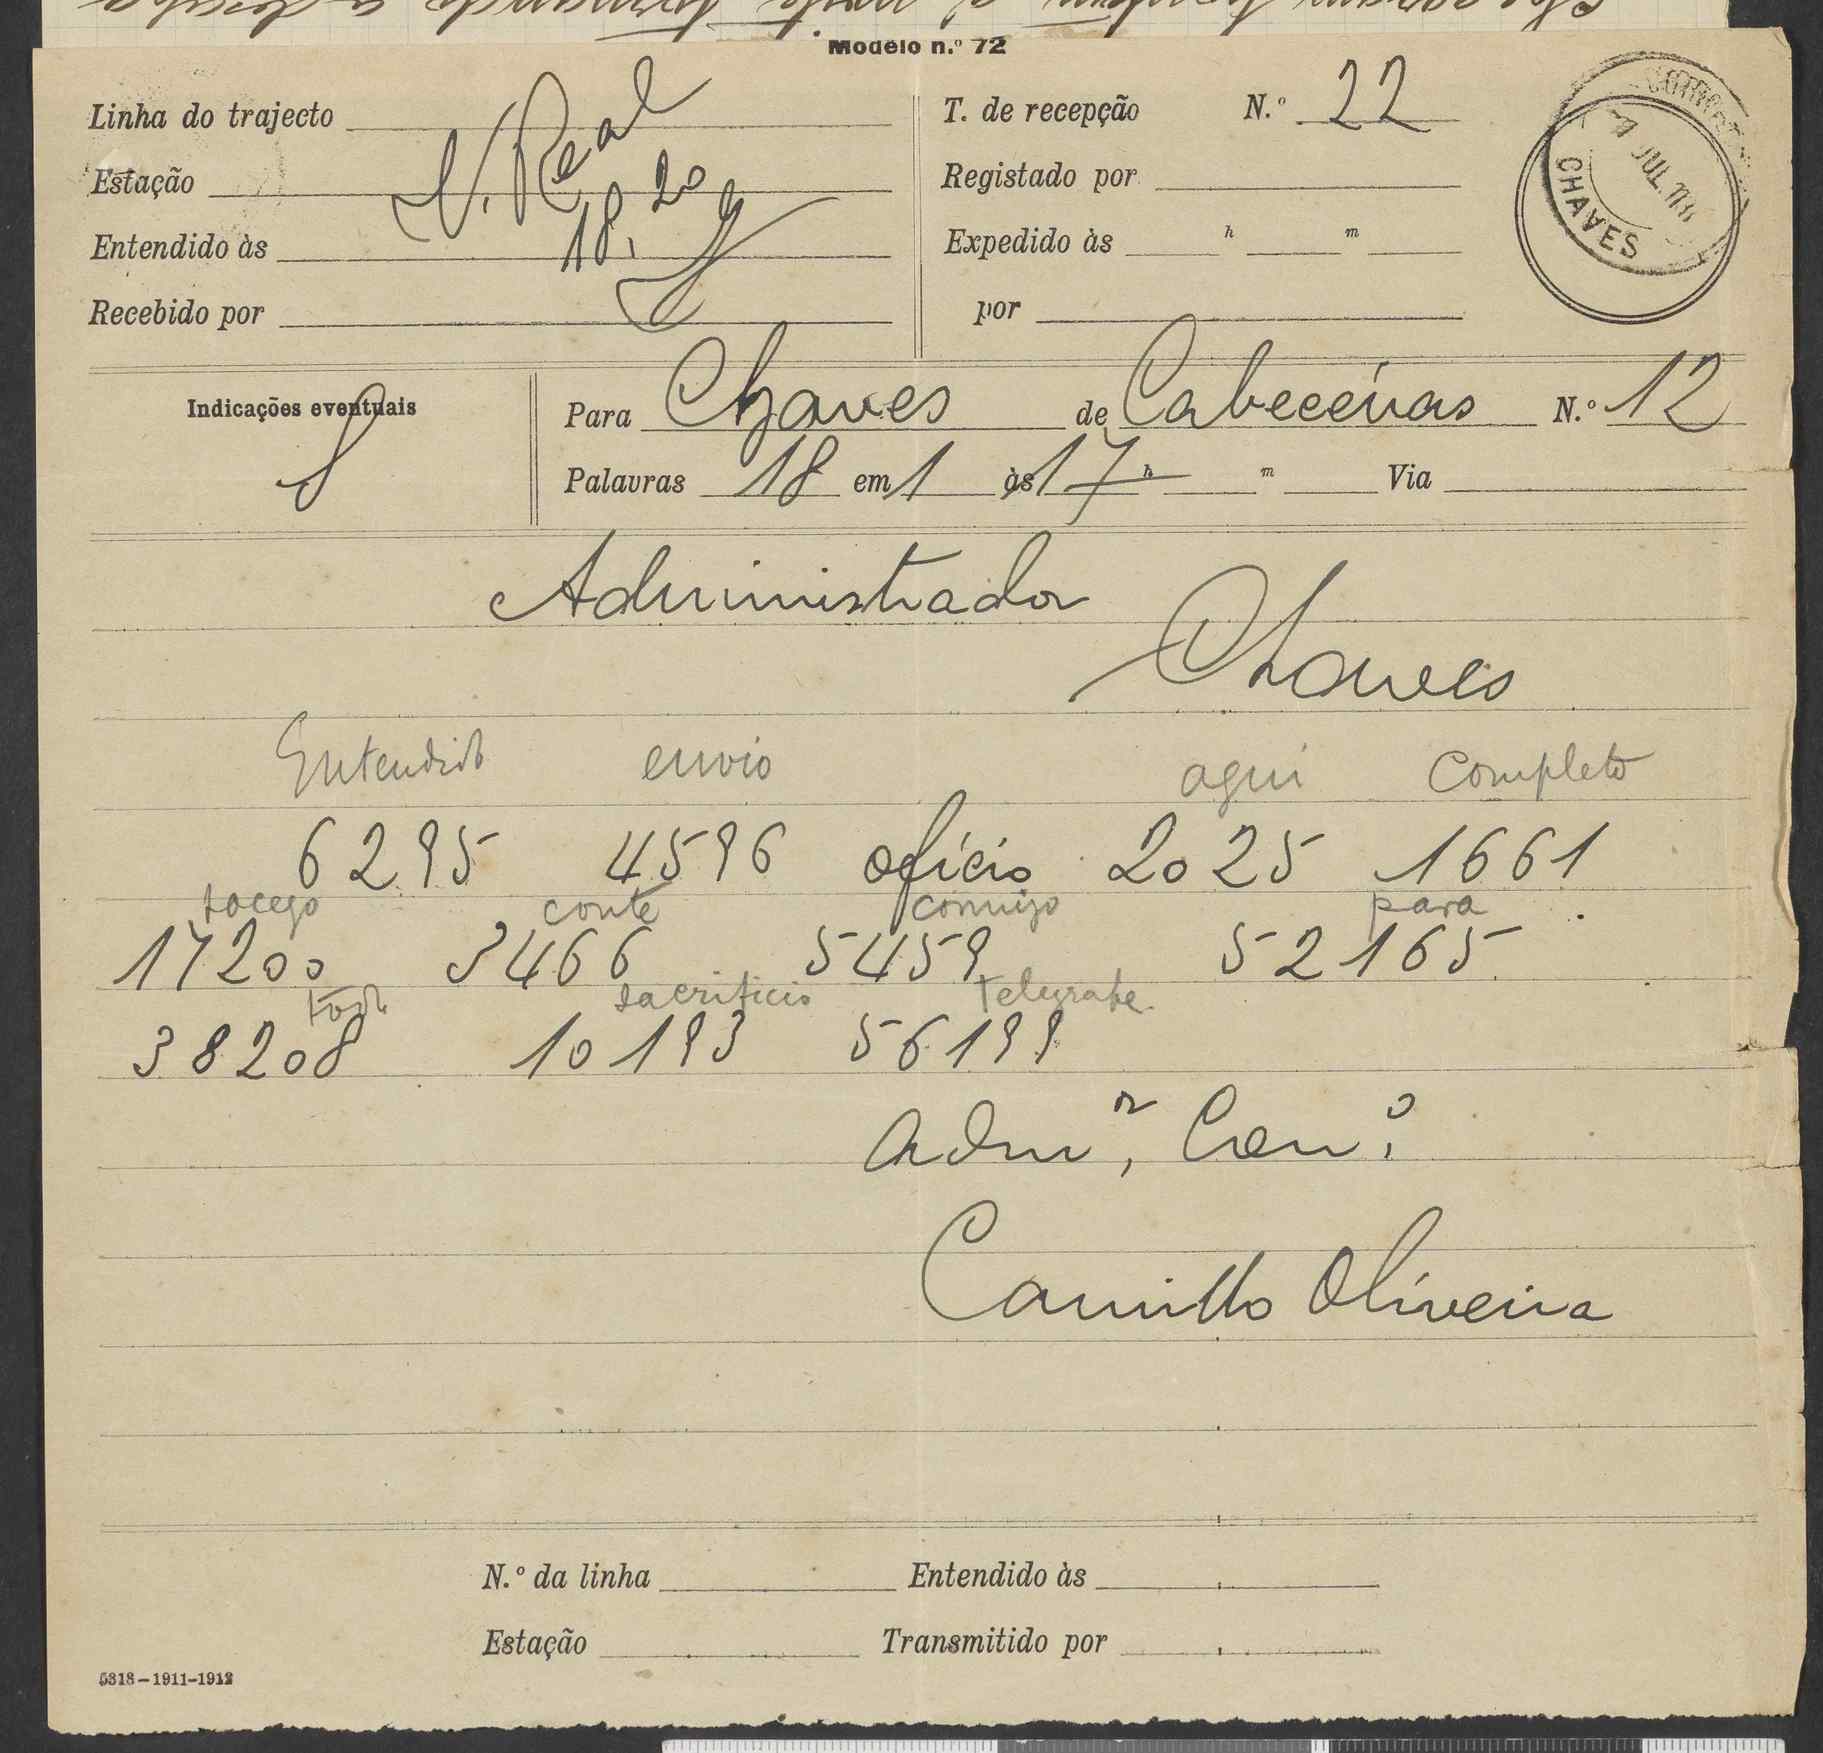 Modelo n.º 72
Linha do trajecto
V. Real
Estação
Entendido às 18,20
Recebido por
T. de recepção N.º 22
Registado por
Expedido às h m
por
CORREIO
1 JUL 11
CHAVES
Indicações eventuais
S
Para Chaves de Cabeceiras N.º 12
Palavras 18 em 1 às 17 h m Via
Administrador
Chaves
Entendido envio aqui completo
6295 4596 oficio 2025 1661
socego conte comigo para
17200 3466 5459 52165
todo sacrificio telegrafe
38208 10193 56199
Admor, Conº
Camillo Oliveira
N.º da linha Entendido às
Estação Transmitido por
5318-1911-1912